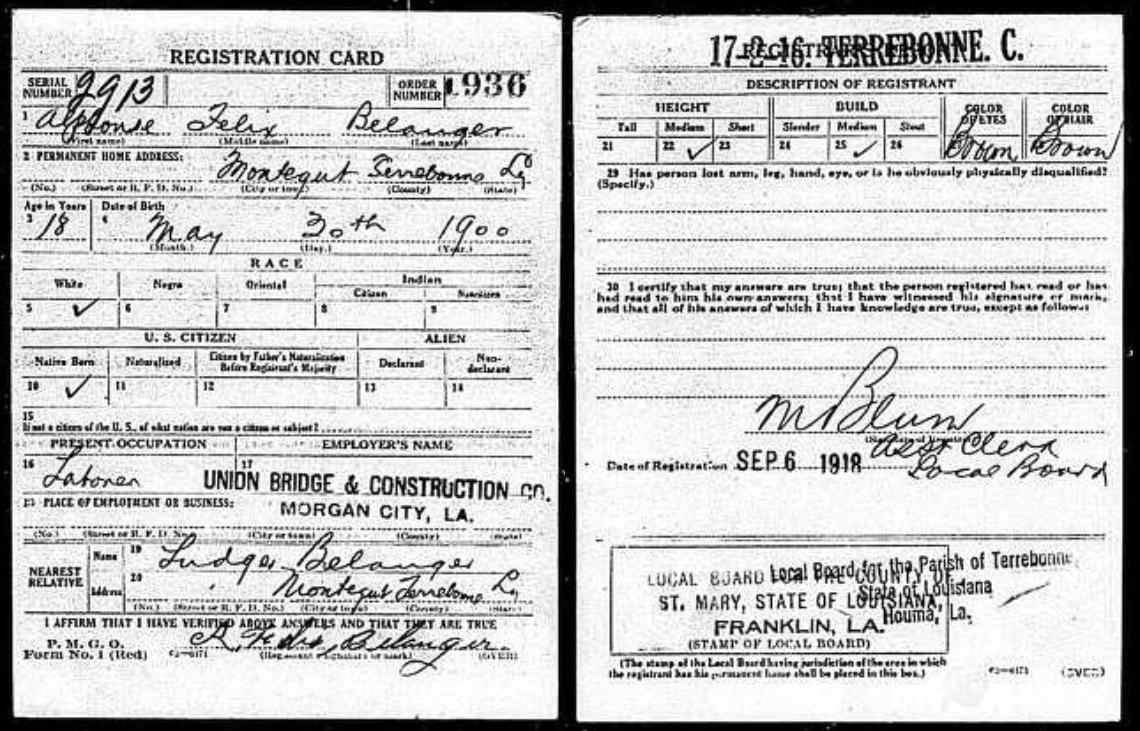 REGISTRATION CARD
SERIAL NUMBER 2913 ORDER NUMBER 1936
1 Alphonse Felix Belanger
(First name) (Middle name) (Last name)
2 PERMANENT HOME ADDRESS:
Montegut Terrebonne La
(No.) (Street or R. F. D. No.) (City or town) (County) (State)
Age in Years Date of Birth
3 18 4 May 30th 1900
(Month.) (Day.) (Year.)
RACE
White Negro Oriental Indian
Citizen Noncitizen
5 ✓ 6 7 8 9
U. S. CITIZEN ALIEN
Native Born Naturalized Citizen by Father's Naturalization Before Registrant's Majority Declarant Non-declarant
10 ✓ 11 12 13 14
15
If not a citizen of the U. S., of what nation are you a citizen or subject?
PRESENT OCCUPATION EMPLOYER'S NAME
16 Laborer 17 UNION BRIDGE & CONSTRUCTION CO.
18 PLACE OF EMPLOYMENT OR BUSINESS:
MORGAN CITY, LA.
(No.) (Street or R. F. D. No.) (City or town) (County) (State)
NEAREST RELATIVE
Name 19 Ludger Belanger
Address 20 Montegut Terrebonne La
(No.) (Street or R. F. D. No.) (City or town) (County) (State)
I AFFIRM THAT I HAVE VERIFIED ABOVE ANSWERS AND THAT THEY ARE TRUE
P. M. G. O.
Form No. 1 (Red) A. Felix Belanger
(Registrant's signature or mark) (OVER)
17-2-16. TERREBONNE. C.
REGISTRAR'S REPORT
DESCRIPTION OF REGISTRANT
HEIGHT BUILD COLOR OF EYES COLOR OF HAIR
Tall Medium Short Slender Medium Stout
21 22 ✓ 23 24 25 ✓ 26 Brown Brown
29 Has person lost arm, leg, hand, eye, or is he obviously physically disqualified?
(Specify.)
30 I certify that my answers are true; that the person registered has read or has
had read to him his own answers; that I have witnessed his signature or mark,
and that all of his answers of which I have knowledge are true, except as follows:
M Blum
Asst Clerk
Local Board
Date of Registration SEP 6 1918
LOCAL BOARD FOR THE COUNTY OF
ST. MARY, STATE OF LOUISIANA,
FRANKLIN, LA.
Local Board for the Parish of Terrebonne,
State of Louisiana
Houma, La.
(STAMP OF LOCAL BOARD)
(The stamp of the Local Board having jurisdiction of the area in which
the registrant has his permanent home shall be placed in this box.)
(OVER)